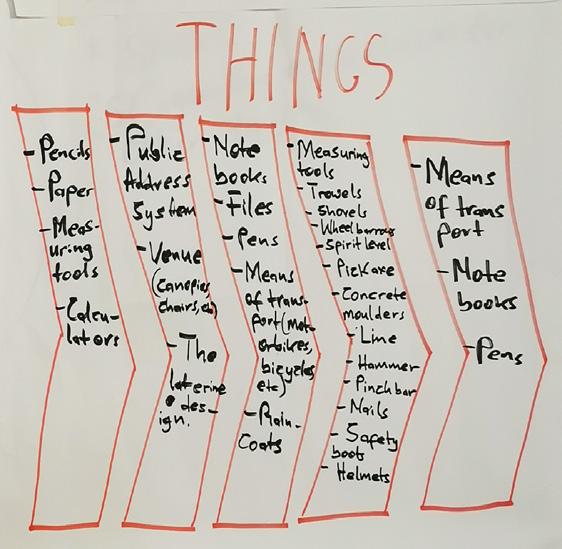 THINGS
- Pencils
- Paper
- Meas-
uring
tools
- Calcu-
lators
- Public
Address
System
- Venue
(canopies,
chairs, etc)
- The
laterine
design.
- Note
books
- Files
- Pens
- Means
of trans-
port (mot-
orbikes,
bicycles,
etc)
- Rain-
Coats
- Measuring
tools
- Trowels
- Shovels
- Wheel barrow
- Spirit level
- Pickaxe
- Concrete
moulders
- Line
- Hammer
- Pinch bar
- Nails
- Safety
boot
- Helmets
- Means
of trans
port
- Note
books
- Pens